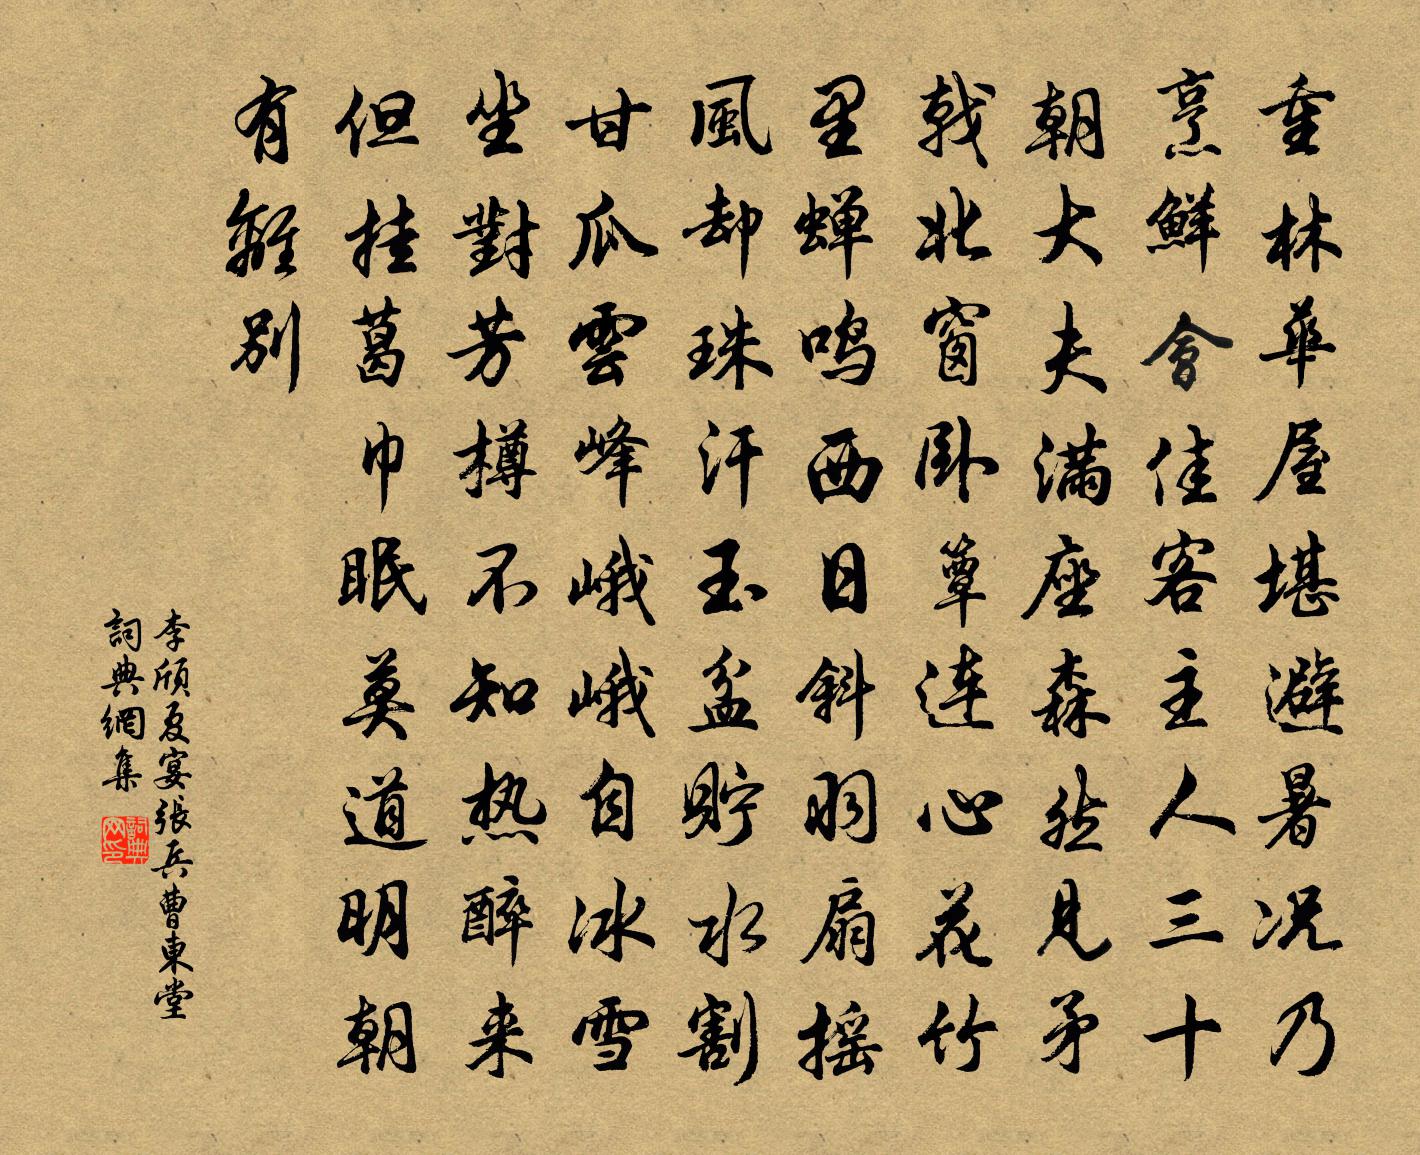 重林華屋堪避暑況乃
烹鮮會佳客主人三十
朝大夫滿座森然見矛
戟北窗卧簟連心花竹
里蟬鳴西日斜羽扇搖
風却珠汗玉盆貯水割
甘瓜雲峰峨峨自冰雪
坐對芳樽不知热醉来
但挂葛巾眠莫道明朝
有離別
李頎夏宴張兵曹東堂
詞典網集
詞典网印